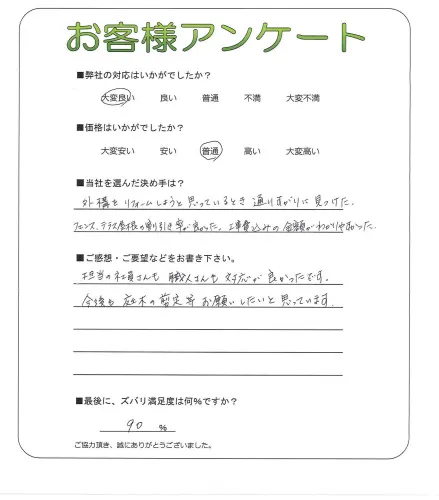 お客様アンケート
■弊社の対応はいかがでしたか？
大変良い 良い 普通 不満 大変不満
■価格はいかがでしたか？
大変安い 安い 普通 高い 大変高い
■当社を選んだ決め手は？
外構をリフォームしようと思っているとき通りすがりに見つけた。
フェンス、テラス屋根の割引き率が良かった。工事費込みの金額がわかりやすかった。
■ご感想・ご要望などをお書き下さい。
担当の社員さんも職人さんも対応が良かったです。
今後も庭木の剪定等お願いしたいと思っています。
■最後に、ズバリ満足度は何％ですか？
90 ％
ご協力頂き、誠にありがとうございました。